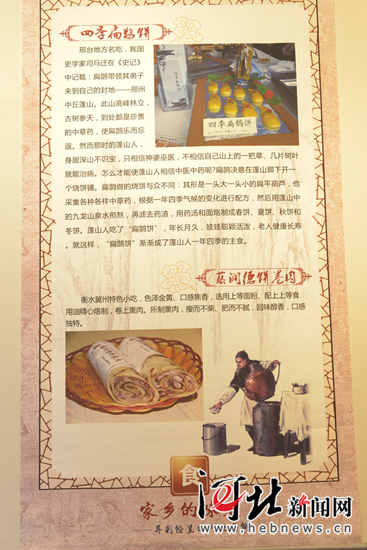 四季扁鹊饼
邢台地方名吃,我国
史学家司马迁在《史记》
中记载:扁鹊带领其弟子
来到自己的封地——邢州
中丘蓬山。此山高峰林立,
古树参天,到处都是珍贵
的中草药,使扁鹊乐而忘
返。然而那时的蓬山人,
四季扁鹊饼
身居深山不识宝,只相信神婆巫医,不相信自己山上的一把草、几片树叶
就能治病。怎么才能使蓬山人相信中医中药呢?扁鹊决意在蓬山脚下开一
个烧饼铺。扁鹊做的烧饼与众不同:其形是一头大一头小的扁平葫芦,他
采集各种各样中草药,根据一年四季气候的变化进行配方,然后用蓬山中
的九龙山泉水煎熬,再滤去药渣,用药汤和面烙制成春饼、夏饼、秋饼和
冬饼。蓬山人吃了“扁鹊饼”,年长月久,娃娃聪颖活泼,老人健康长寿
。就这样,“扁鹊饼”渐渐成了蓬山人一年四季的主食。
蔡润德饼卷肉
衡水冀州特色小吃,色泽金黄、口感焦香,选用上等面粉,配上上等食
用油精心烙制,卷上熏肉。所制熏肉,瘦而不柴、肥而不腻,回味醇香,口感
独特。
食
家乡的
异彩纷呈
河北新闻网
www.hebnews.cn